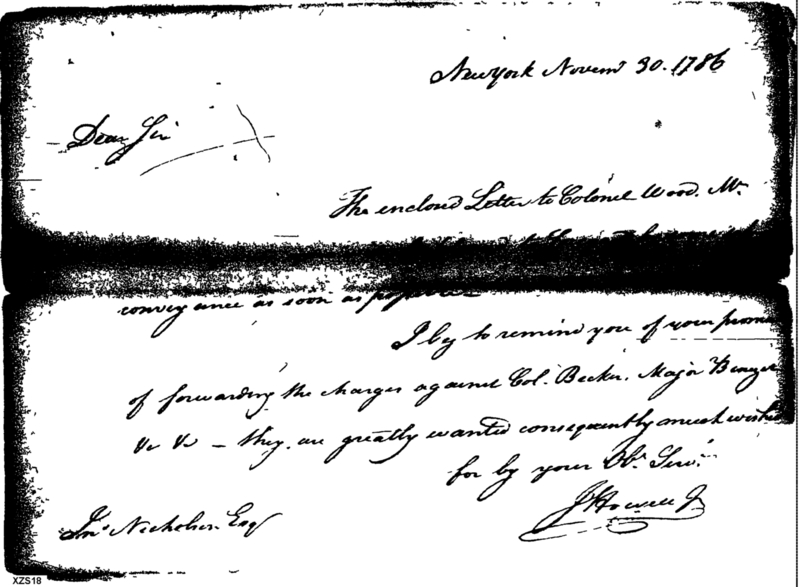 New York Novemr 30. 1786
Dear Sir
The enclosed Letter to Colonel Wood. Mr.
conveyance as soon as possible
I beg to remind you of your
of forwarding the charges against Col. Becker, Major
&c &c – they are greatly wanted consequently much wished
for by your Obt. Servt.
J Howell Jr
Jno. Nicholson Esqr
XZS18